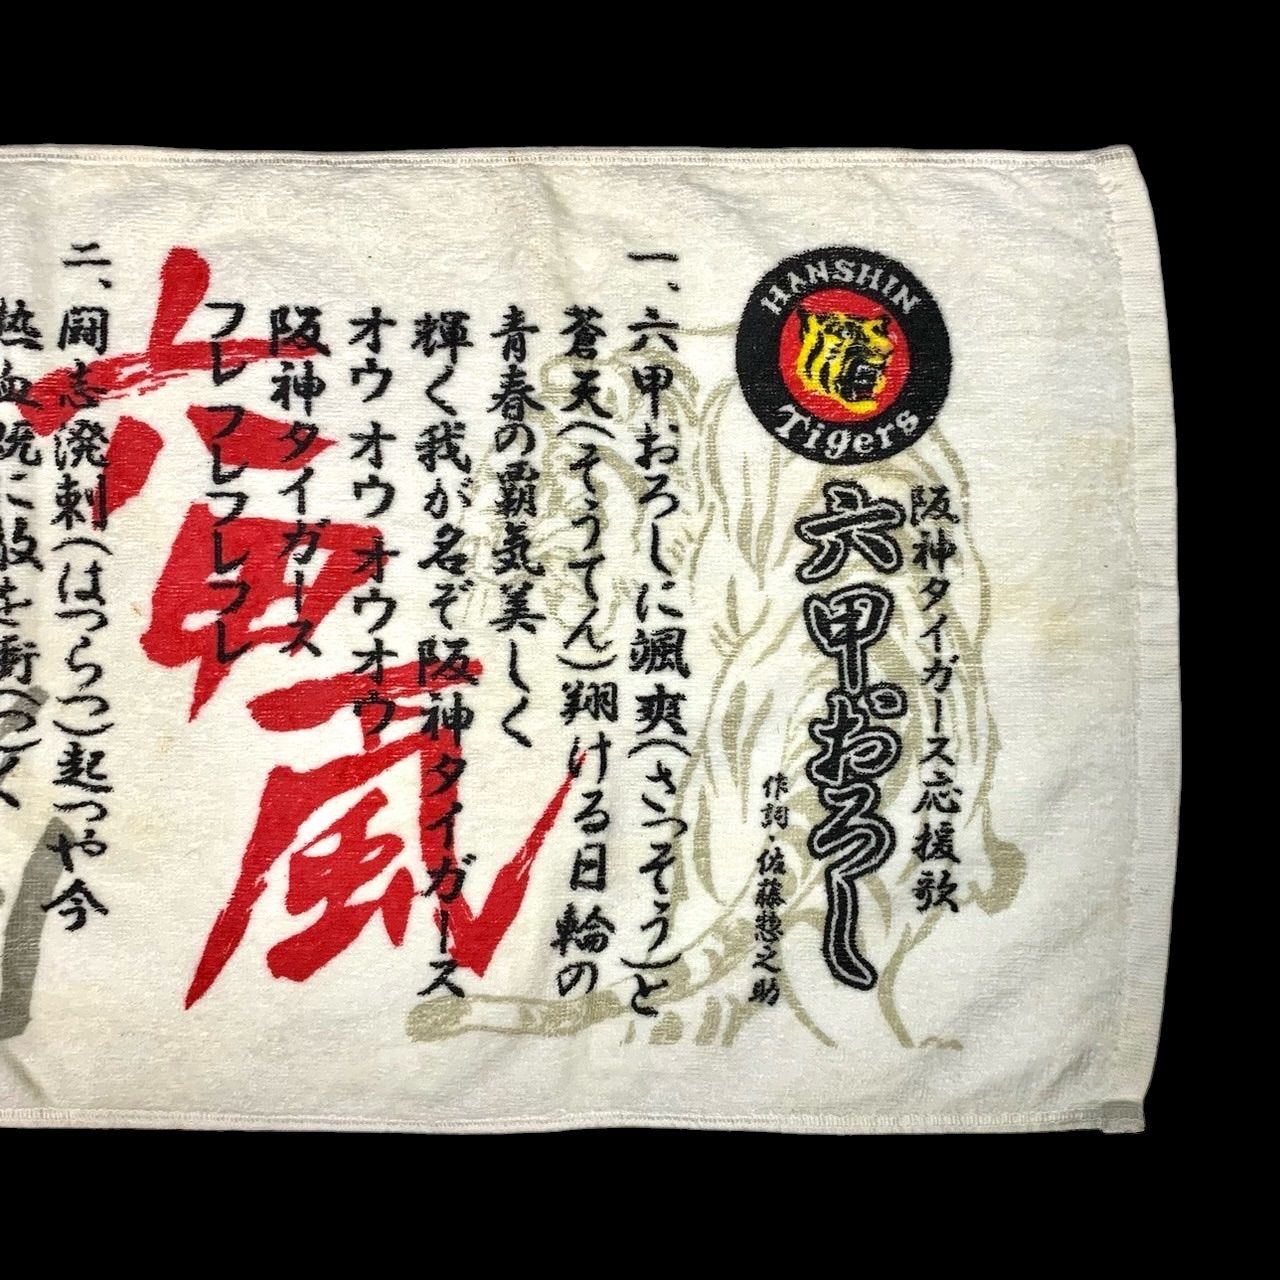 HANSHIN
Tigers
阪神タイガース応援歌
六甲おろし
作詞・佐藤惣之助
一、六甲おろしに颯爽(さっそう)と
蒼天(そうてん)翔ける日輪の
青春の覇気美しく
輝く我が名ぞ阪神タイガース
オウ オウ オウオウ
阪神タイガース
フレフレフレフレ
二、闘志溌剌(はつらつ)起つや今
熱血既に敵を衝(つ)く
六甲颪